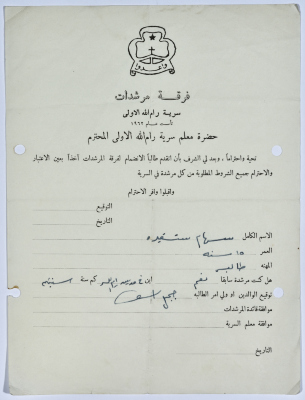 واعدوا
فرقة مرشدات
سرية رام الله الاولى
تأسست عام ١٩٦٢
حضرة معلم سرية رام الله الاولى المحترم
تحية واحتراما ، وبعد لي الشرف بأن اتقدم طالبا الانضمام لفرقة المرشدات آخذا بعين الاعتبار
والاحترام جميع الشروط المطلوبة من كل مرشدة في السرية
واقبلوا وافر الاحترام
التوقيع
التاريخ
الاسم الكامل سهام
العمر ١٥ سنة
المهنه طالبه
هل كنت مرشدة سابقا نعم اين في مدرسة كم سنة سنتين
توقيع الوالدين او ولي امر الطالبه
موافقة قائدة المرشدات
موافقة معلم السرية
التاريخ